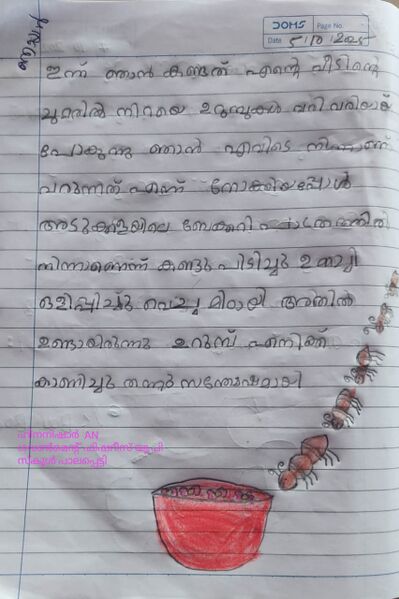 DOMS Page No.
Date 5/10/2025
ഇന്ന് ഞാൻ കണ്ടത് എന്റെ വീടിന്റെ
ചുമരിൽ നിറയെ ഉറുമ്പുകൾ വരി വരിയായ്
പോകുന്നു ഞാൻ എവിടെ നിന്നാണ്
വറുന്നത് എന്ന് നോക്കിയപ്പോൾ
അടുക്കളയിലെ ബേക്കറി
നിന്നാണെന്ന് കണ്ടു പിടിച്ചു ഉമ്മച്ചി
ഒളിപ്പിച്ചു വെച്ച മിഠായി അതിൽ
ഉണ്ടായിരുന്നു ഉറുമ്പ് എനിക്ക്
കാണിച്ചു തന്നു സന്തോഷമായി
ഹിനനിഷാൻ AN
ഗവൺമെന്റ് ഫിഷറീസ് യു.പി
സ്കൂൾ പാലപ്പെട്ടി